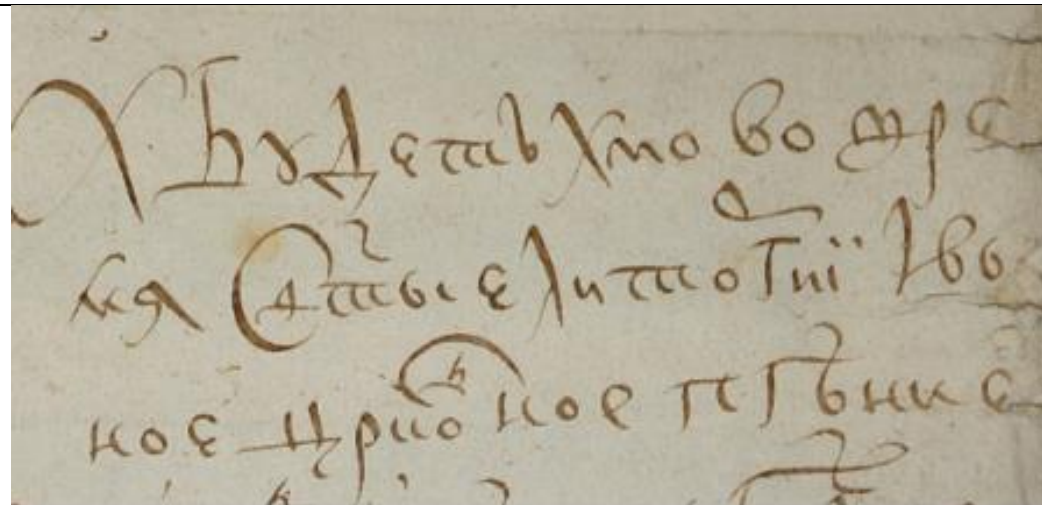 А будетъ хто во вре
мя ст҃ые литоргиї і вы
ное цр҃ковное пѣние